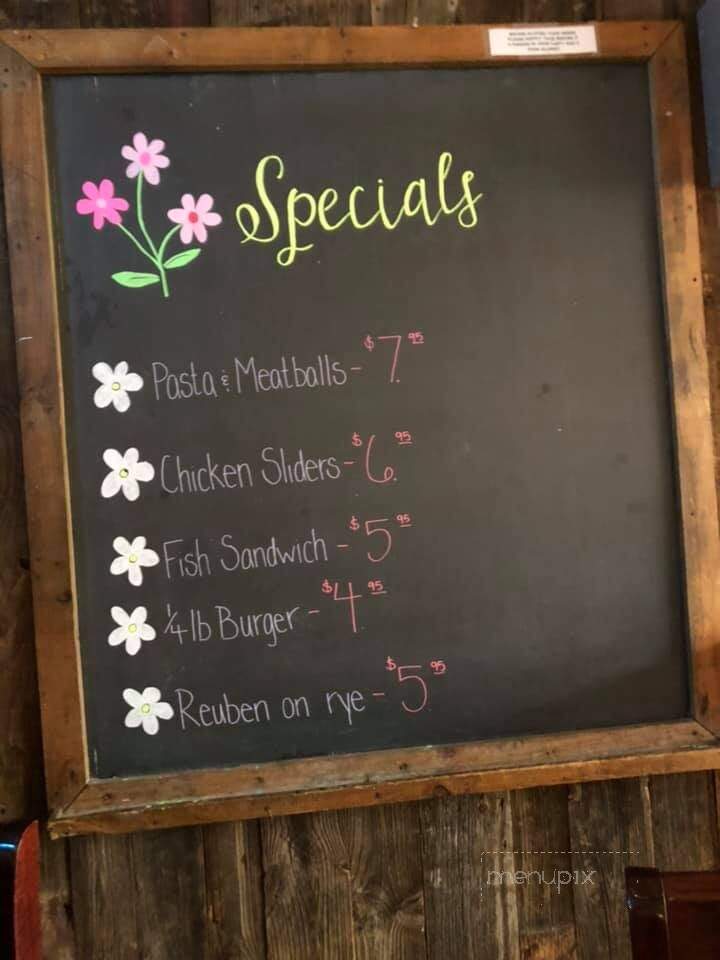 Specials
Pasta & Meatballs - $7.95
Chicken Sliders - $6.95
Fish Sandwich - $5.95
1/4 lb Burger - $4.95
Reuben on rye - $5.95
menupix